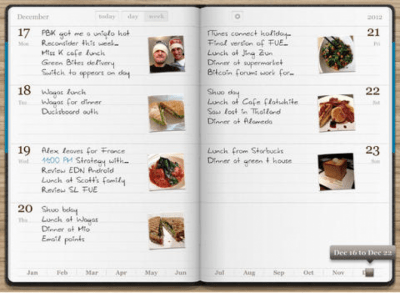 December
today day week
2012
17
Mon
PBK got me a uniqlo hat
Reconsider this week...
Miss K cafe lunch
Green Bites delivery
Switch to appears on day
18
Tue
Wagas lunch
Wagas for dinner
Ducksboard auth
19
Wed
Alex leaves for France
11:00 AM Strategy with...
Review EDN Android
Lunch at Scott's family
Review SL FUE
20
Thu
Shuo bday
Lunch at Wagas
Dinner at Mio
Email points
iTunes connect holiday...
Final version of FUE...
Lunch at Zing Jian
Dinner at supermarket
Bitcoin forums work for...
21
Fri
Shuo day
Lunch at Cafe flatwhite
Saw lost in Thailand
Dinner at Alameda
22
Sat
Lunch from Starbucks
Dinner at green t house
23
Sun
Dec 16 to Dec 22
Jan Feb Mar Apr May Jun Jul Aug Sep Oct Nov